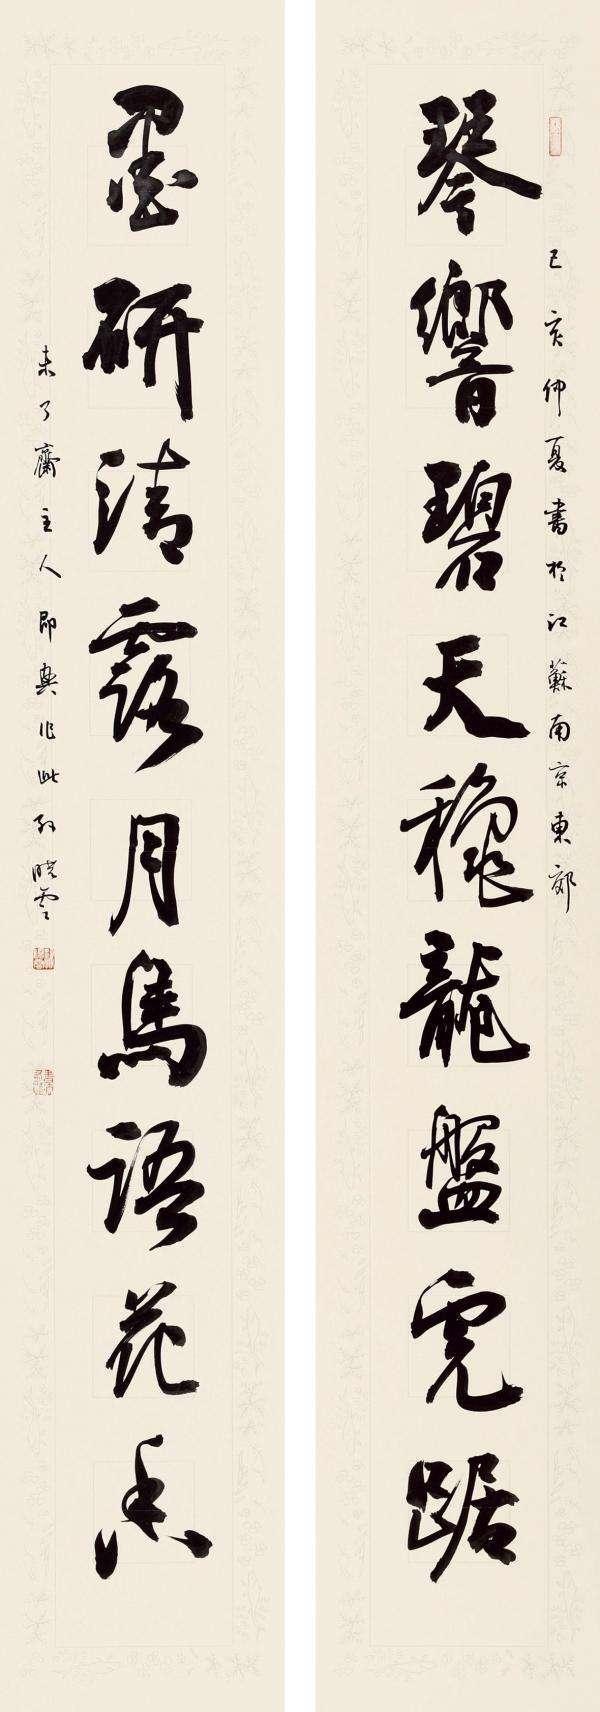 己亥仲夏書於江蘇南京東郊
琴響碧天穐龍盤虎踞
墨研清露月鳥語花香
未了齋主人即興作此孫曉雲